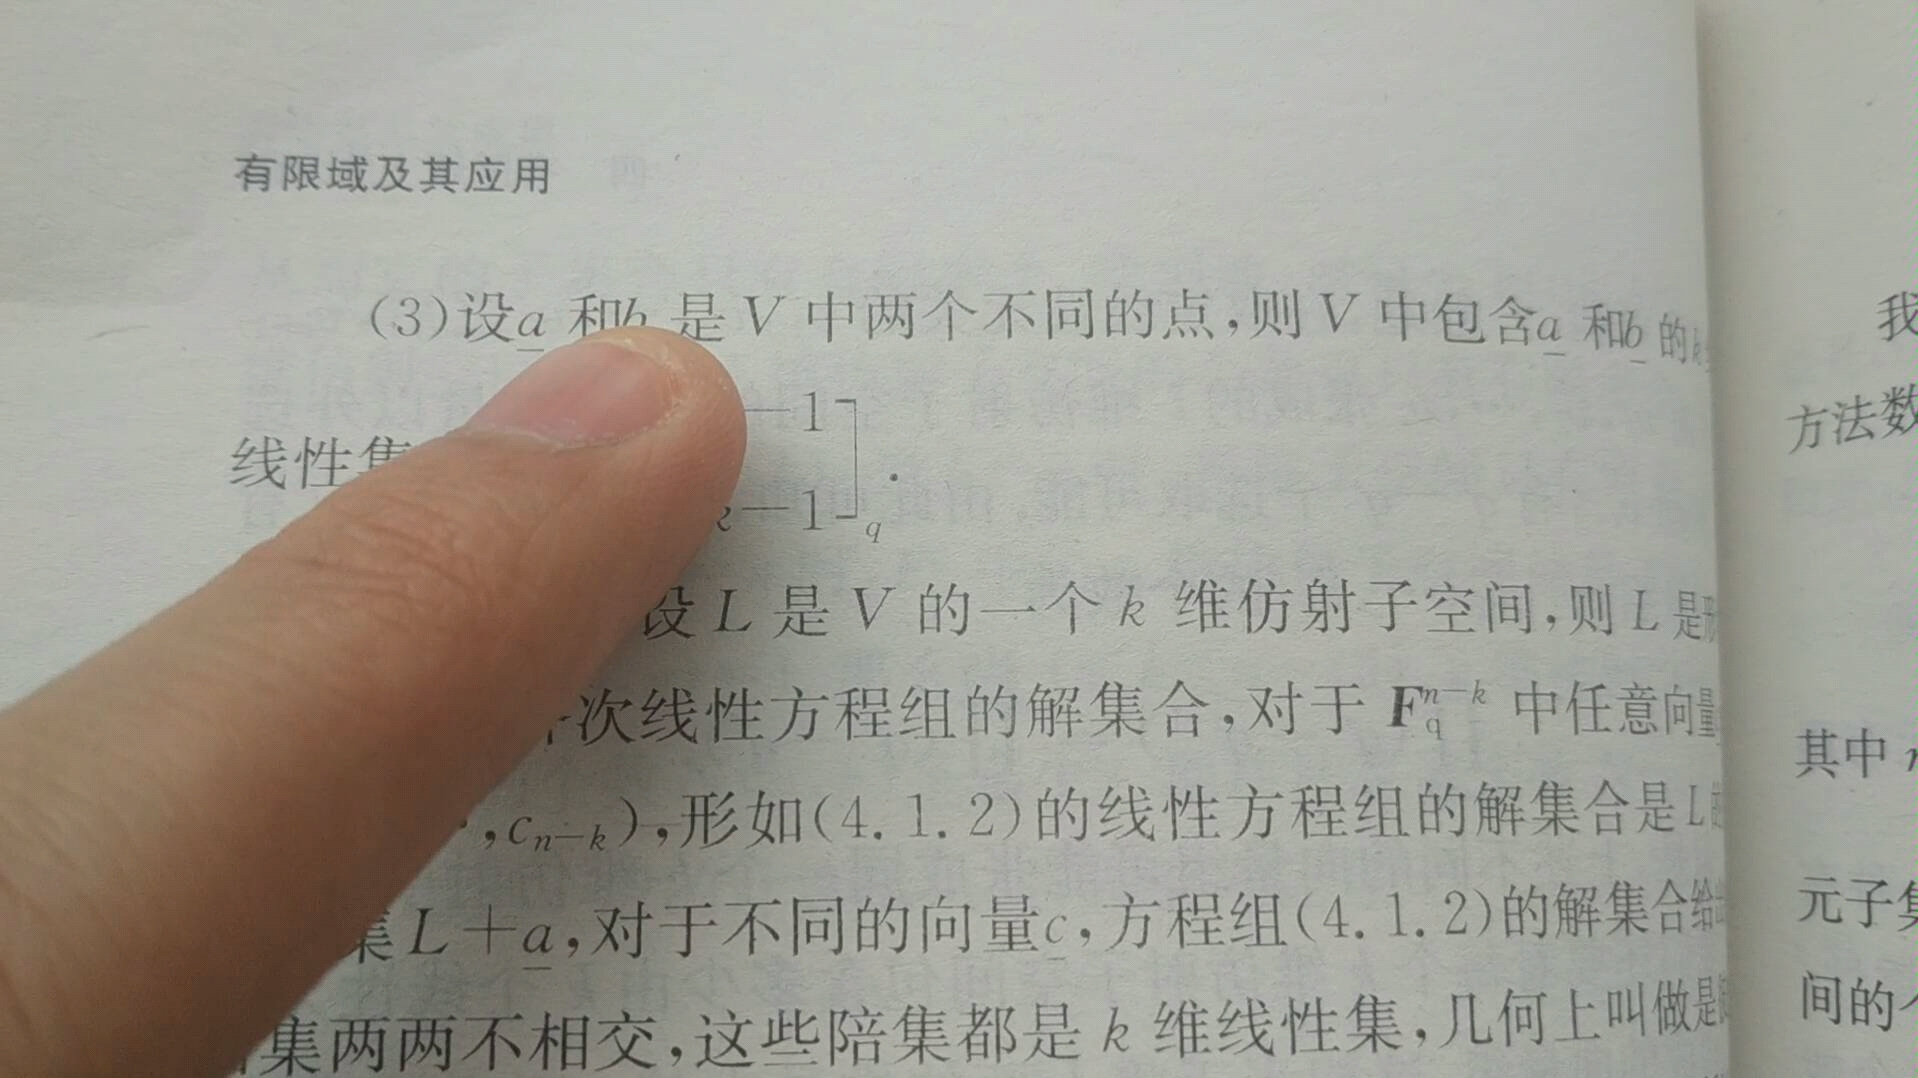 有限域及其应用
(3)设a 和b 是 V 中两个不同的点,则 V 中包含a 和b 的k
线性集
-1
k-1]q .
设 L 是 V 的一个 k 维仿射子空间,则 L 是形
次线性方程组的解集合,对于 F_q^{n-k} 中任意向量
,c_{n-k}),形如(4.1.2)的线性方程组的解集合是 L 的
集 L+a,对于不同的向量c,方程组(4.1.2)的解集合给出
集两两不相交,这些陪集都是 k 维线性集,几何上叫做是
我
方法数
其中
元子集
间的个